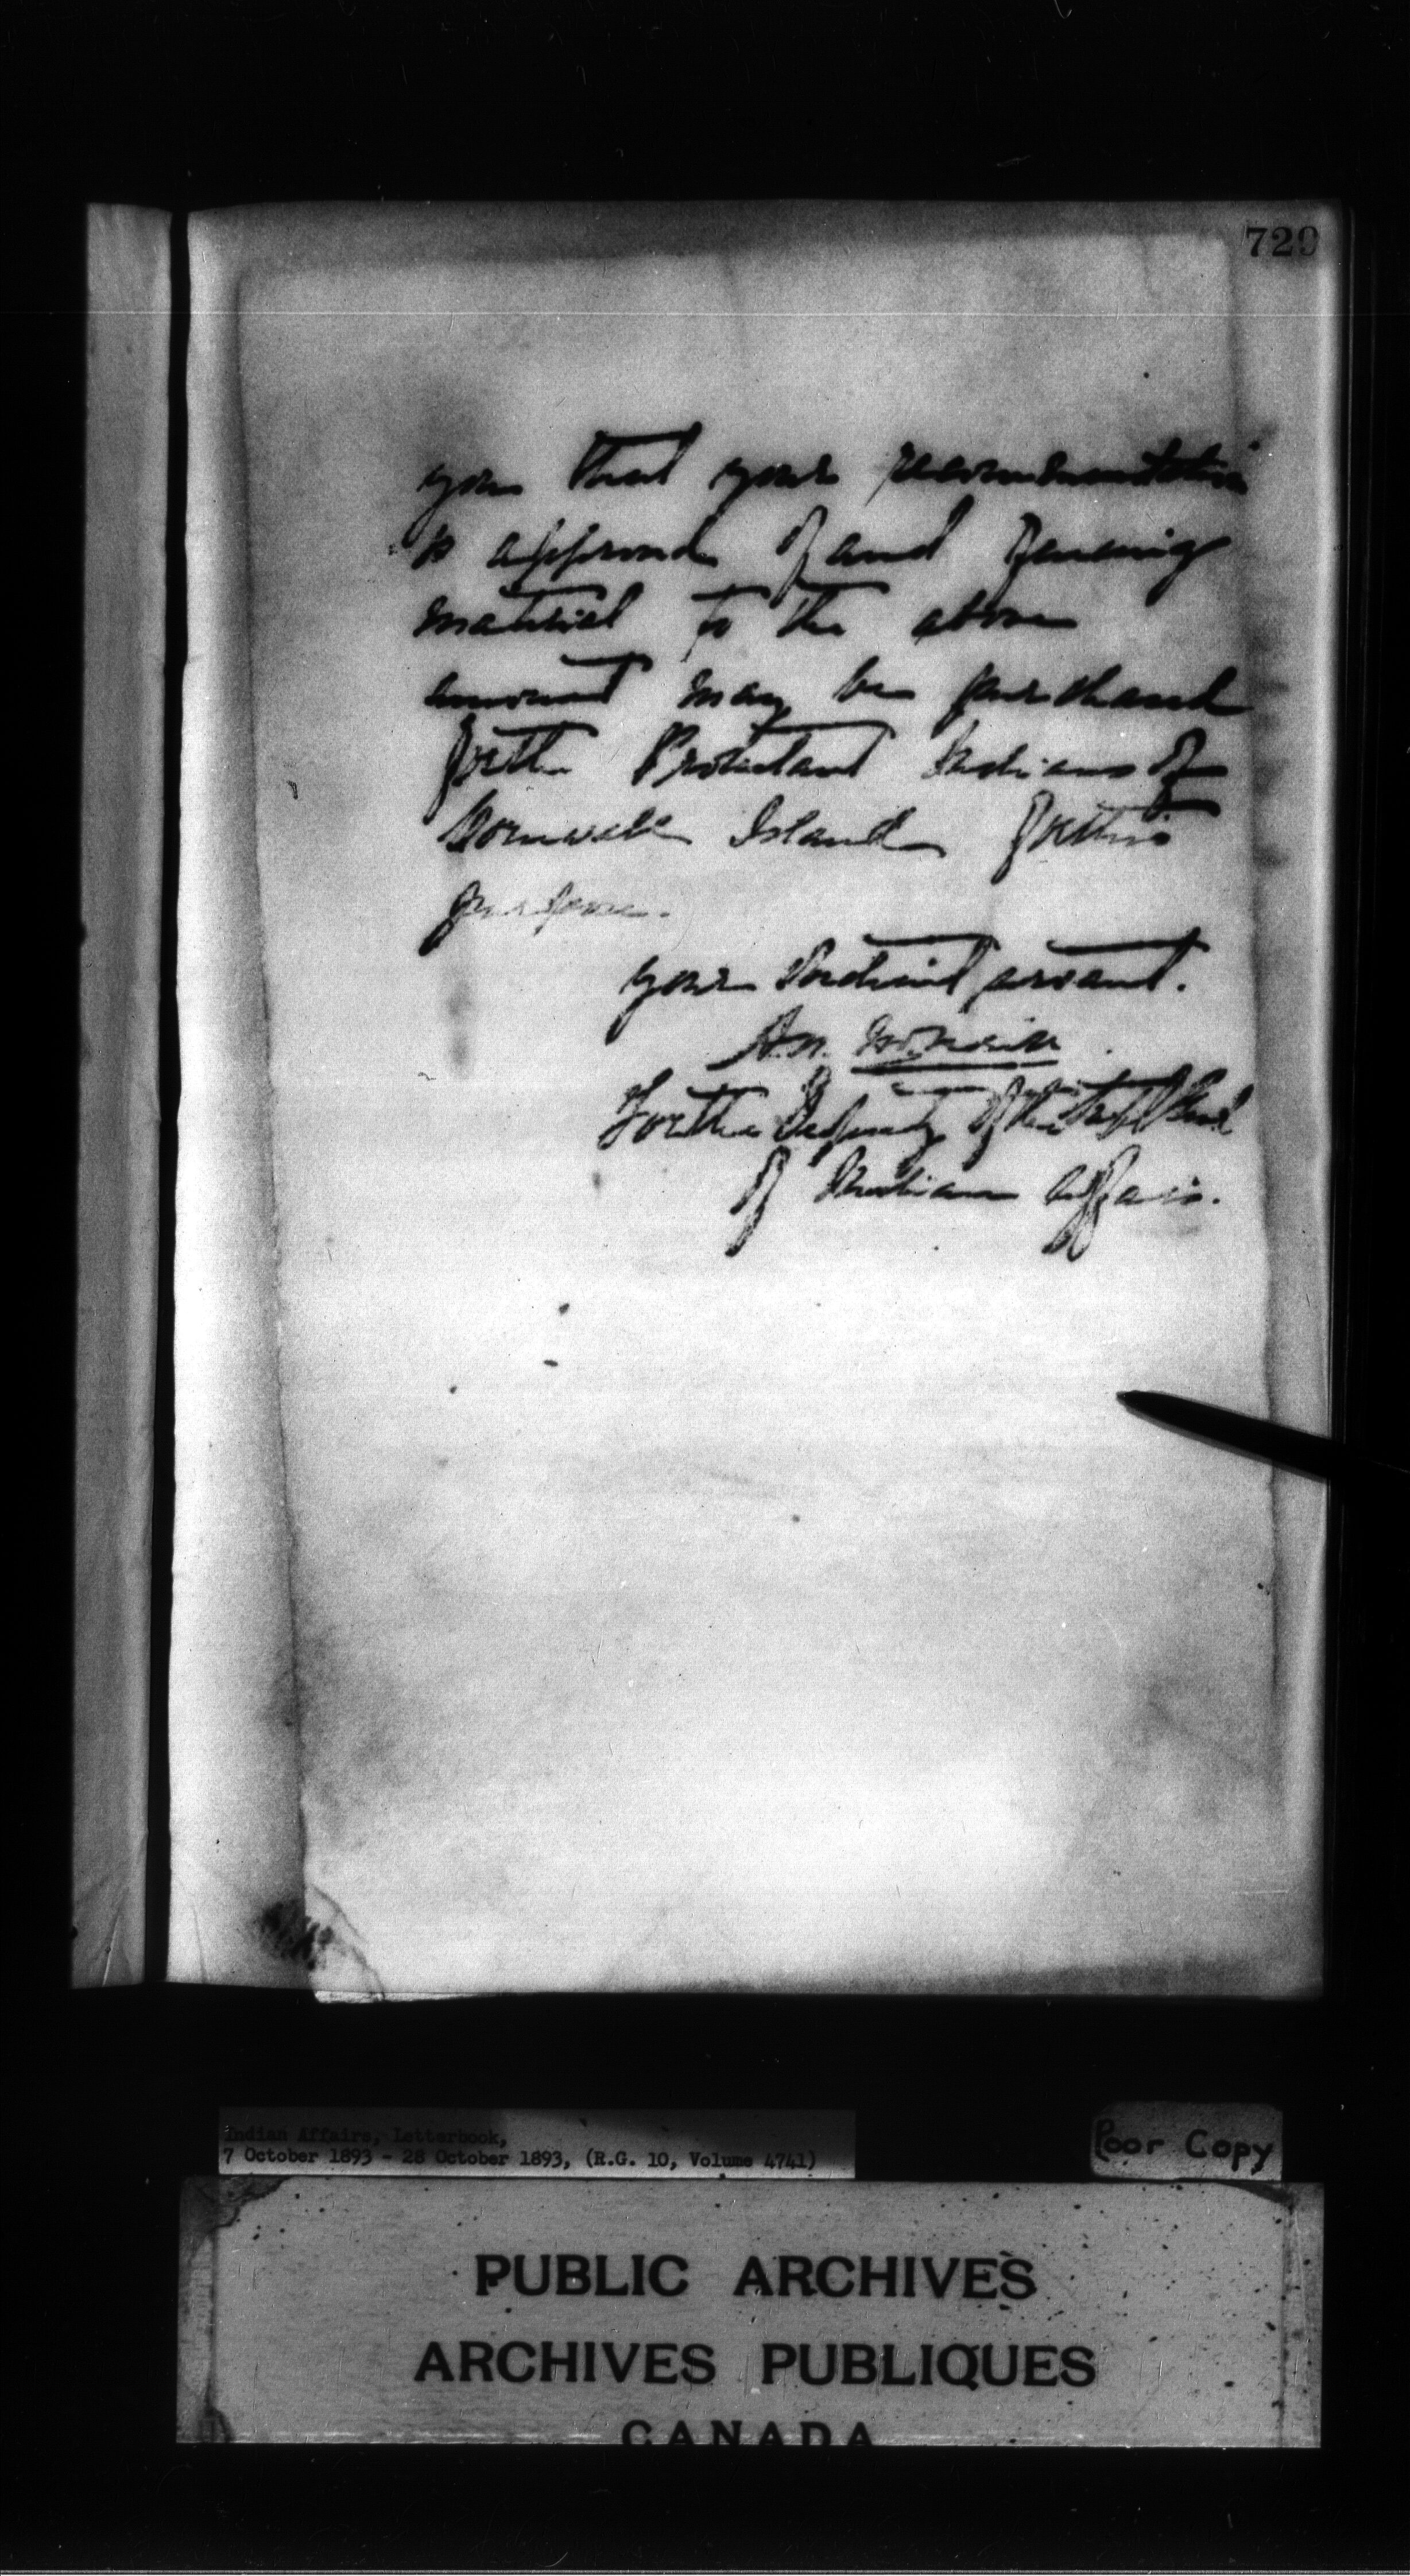 729
you that your recommendation
is approved of and fencing
material to the above
amount may be purchased
for the Protestant Indians of
Cornwall Island for this
purpose.
your obedient servant.
A.N. McNeill
For the Deputy of the Supt Genl
of Indian Affairs.
Indian Affairs, Letterbook,
7 October 1893 - 28 October 1893, (R.G. 10, Volume 4741)
Poor Copy
PUBLIC ARCHIVES
ARCHIVES PUBLIQUES
CANADA